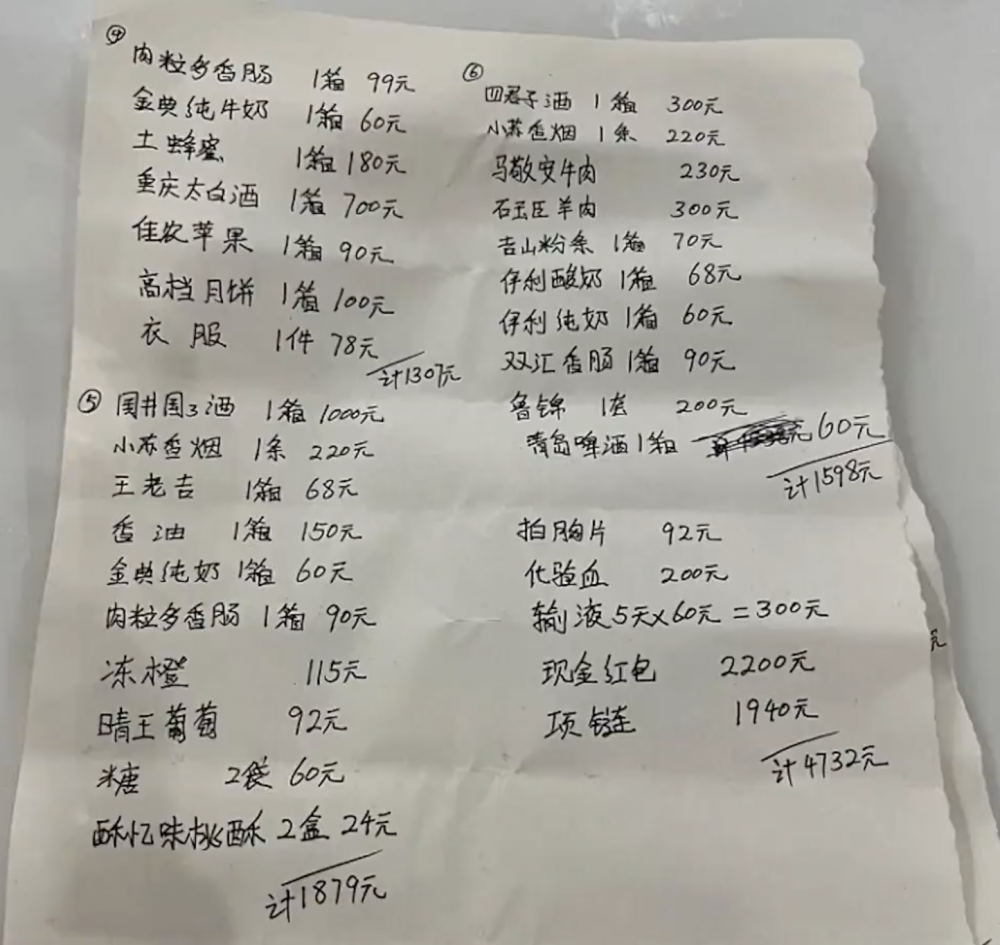 ④
肉粒多香肠 1箱 99元
金典纯牛奶 1箱 60元
土蜂蜜 1箱 180元
重庆太白酒 1箱 700元
佳农苹果 1箱 90元
高档月饼 1箱 100元
衣服 1件 78元
计1307元
⑤ 国井国3酒 1箱 1000元
小苏香烟 1条 220元
王老吉 1箱 68元
香油 1箱 150元
金典纯奶 1箱 60元
肉粒多香肠 1箱 90元
冻橙 115元
晴王葡萄 92元
糖 2袋 60元
酥忆味桃酥 2盒 24元
计1879元
⑥
四君子酒 1箱 300元
小苏香烟 1条 220元
马敬安牛肉 230元
石玉臣羊肉 300元
吉山粉条 1箱 70元
伊利酸奶 1箱 68元
伊利纯奶 1箱 60元
双汇香肠 1箱 90元
鲁锦 1套 200元
青岛啤酒 1箱 60元
计1598元
拍胸片 92元
化验血 200元
输液5天×60元=300元
现金红包 2200元
项链 1940元
计4732元
元